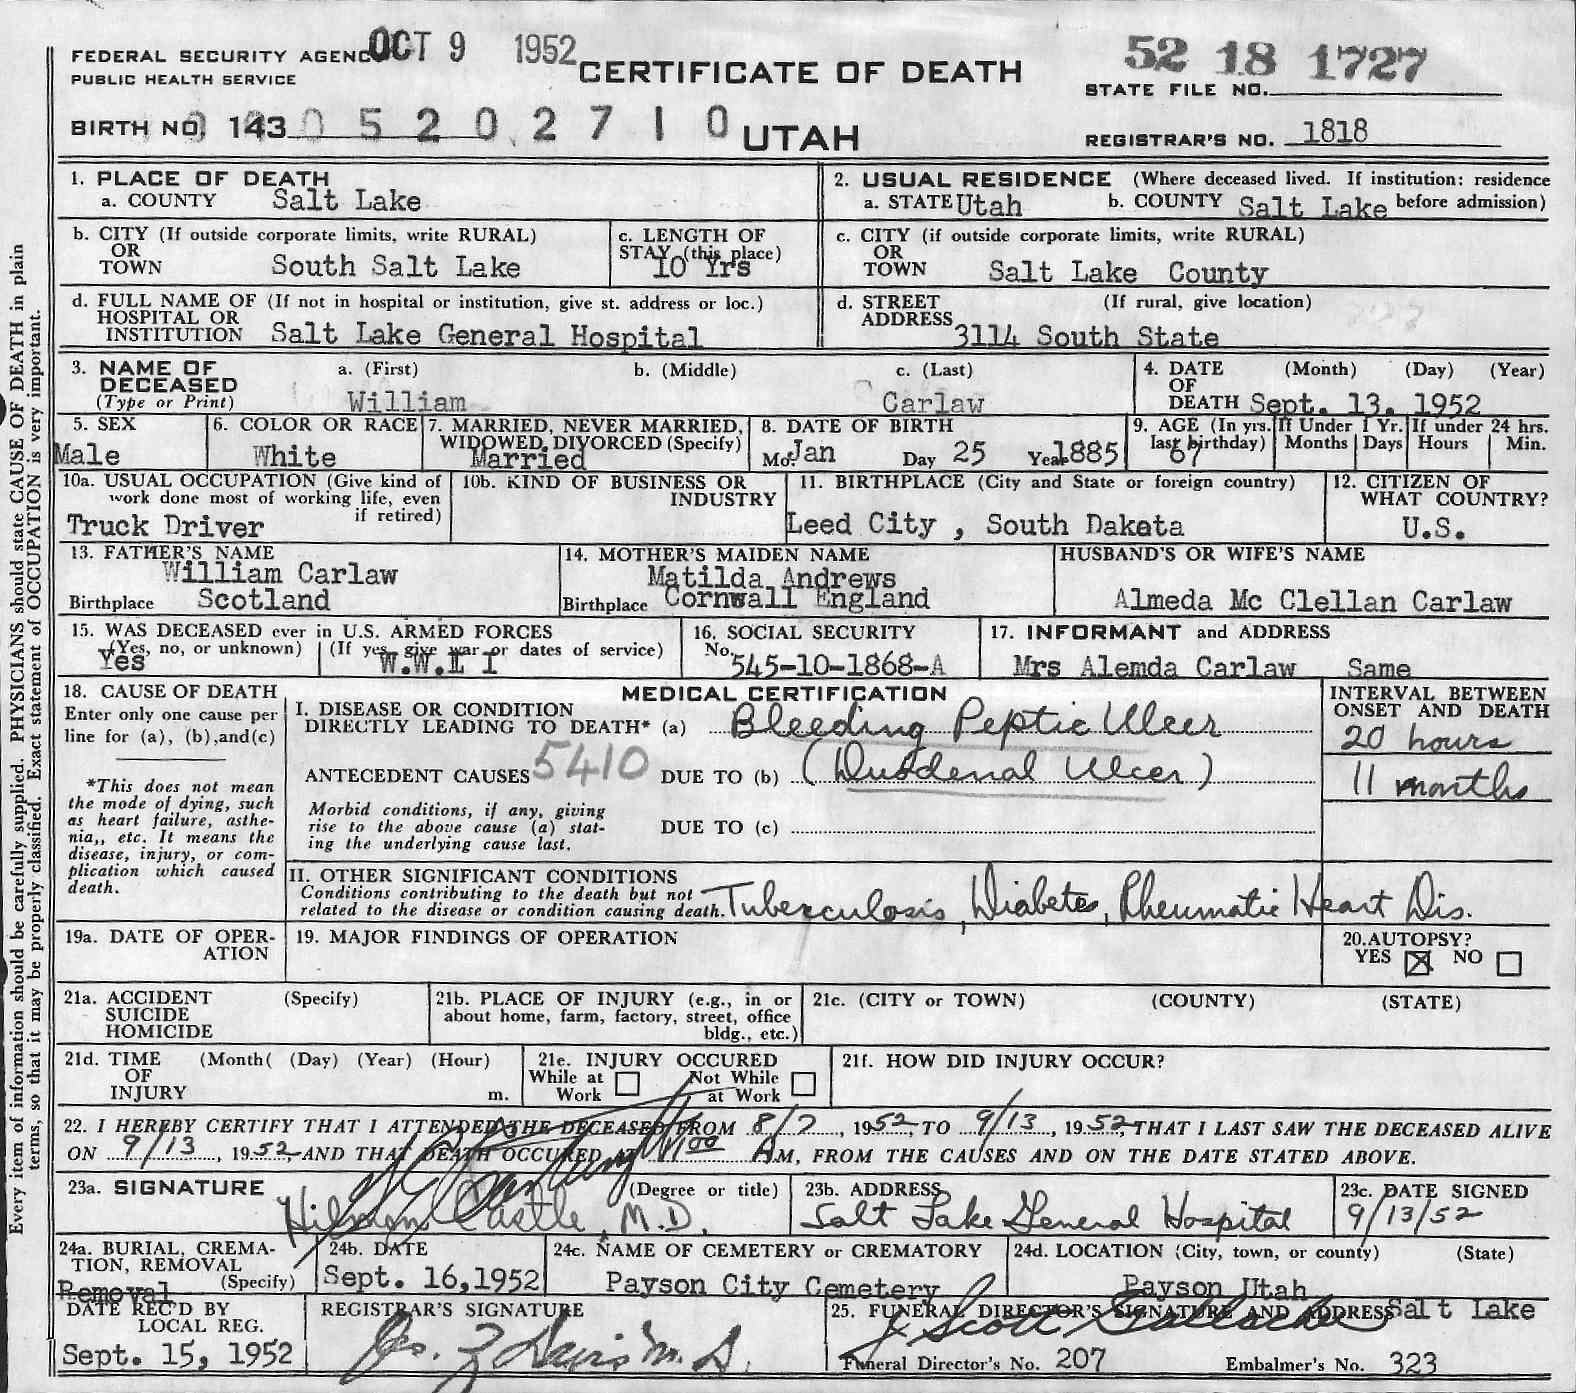 OCT 9 1952
52 18 1727
FEDERAL SECURITY AGENCY
PUBLIC HEALTH SERVICE
CERTIFICATE OF DEATH
STATE FILE NO.
BIRTH NO. 143
0 5 2 0 2 7 1 0
UTAH
REGISTRAR'S NO. 1818
1. PLACE OF DEATH
a. COUNTY Salt Lake
2. USUAL RESIDENCE (Where deceased lived. If institution: residence
a. STATE Utah b. COUNTY Salt Lake before admission)
b. CITY (If outside corporate limits, write RURAL)
OR
TOWN South Salt Lake
c. LENGTH OF
STAY (this place)
10 Yrs
c. CITY (if outside corporate limits, write RURAL)
OR
TOWN Salt Lake County
d. FULL NAME OF (If not in hospital or institution, give st. address or loc.)
HOSPITAL OR
INSTITUTION Salt Lake General Hospital
d. STREET (If rural, give location)
ADDRESS 3114 South State
3. NAME OF a. (First) b. (Middle) c. (Last)
DECEASED
(Type or Print) William Carlaw
4. DATE (Month) (Day) (Year)
OF
DEATH Sept. 13. 1952
5. SEX
Male
6. COLOR OR RACE
White
7. MARRIED, NEVER MARRIED,
WIDOWED, DIVORCED (Specify)
Married
8. DATE OF BIRTH
Mo. Jan Day 25 Year 1885
9. AGE (In yrs.
last birthday)
67
If Under 1 Yr.
Months Days
If under 24 hrs.
Hours Min.
10a. USUAL OCCUPATION (Give kind of
work done most of working life, even
if retired)
Truck Driver
10b. KIND OF BUSINESS OR
INDUSTRY
11. BIRTHPLACE (City and State or foreign country)
Leed City , South Dakota
12. CITIZEN OF
WHAT COUNTRY?
U.S.
13. FATHER'S NAME
William Carlaw
Birthplace Scotland
14. MOTHER'S MAIDEN NAME
Matilda Andrews
Birthplace Cornwall England
HUSBAND'S OR WIFE'S NAME
Almeda Mc Clellan Carlaw
15. WAS DECEASED ever in U.S. ARMED FORCES
(Yes, no, or unknown) (If yes, give war or dates of service)
Yes W.W.I I
16. SOCIAL SECURITY
No. 545-10-1868-A
17. INFORMANT and ADDRESS
Mrs Alemda Carlaw Same
18. CAUSE OF DEATH
Enter only one cause per
line for (a), (b),and(c)
*This does not mean
the mode of dying, such
as heart failure, asthe-
nia,, etc. It means the
disease, injury, or com-
plication which caused
death.
MEDICAL CERTIFICATION
I. DISEASE OR CONDITION
DIRECTLY LEADING TO DEATH* (a) Bleeding Peptic Ulcer
ANTECEDENT CAUSES 5410 DUE TO (b) (Duodenal Ulcer)
Morbid conditions, if any, giving
rise to the above cause (a) stat-
ing the underlying cause last.
DUE TO (c)
INTERVAL BETWEEN
ONSET AND DEATH
20 hours
11 months
II. OTHER SIGNIFICANT CONDITIONS
Conditions contributing to the death but not
related to the disease or condition causing death. Tuberculosis, Diabetes, Rheumatic Heart Dis.
19a. DATE OF OPER-
ATION
19. MAJOR FINDINGS OF OPERATION
20. AUTOPSY?
YES NO
21a. ACCIDENT (Specify)
SUICIDE
HOMICIDE
21b. PLACE OF INJURY (e.g., in or
about home, farm, factory, street, office
bldg., etc.)
21c. (CITY or TOWN) (COUNTY) (STATE)
21d. TIME (Month( (Day) (Year) (Hour)
OF
INJURY m.
21e. INJURY OCCURED
While at Not While
Work at Work
21f. HOW DID INJURY OCCUR?
22. I HEREBY CERTIFY THAT I ATTENDED THE DECEASED FROM 8/7, 1952, TO 9/13, 1952, THAT I LAST SAW THE DECEASED ALIVE
ON 9/13, 1952, AND THAT DEATH OCCURED AT 1:00 AM, FROM THE CAUSES AND ON THE DATE STATED ABOVE.
23a. SIGNATURE (Degree or title)
Hilmon Castle, M.D.
23b. ADDRESS
Salt Lake General Hospital
23c. DATE SIGNED
9/13/52
24a. BURIAL, CREMA-
TION, REMOVAL
(Specify)
Removal
24b. DATE
Sept. 16,1952
24c. NAME OF CEMETERY or CREMATORY
Payson City Cemetery
24d. LOCATION (City, town, or county) (State)
Payson Utah
DATE REC'D BY
LOCAL REG.
Sept. 15, 1952
REGISTRAR'S SIGNATURE
Jos. Z Davis M.D.
25. FUNERAL DIRECTOR'S SIGNATURE AND ADDRESS Salt Lake
J. Scott
Funeral Director's No. 207 Embalmer's No. 323
Every item of information should be carefully supplied. PHYSICIANS should state CAUSE OF DEATH in plain
terms, so that it may be properly classified. Exact statement of OCCUPATION is very important.